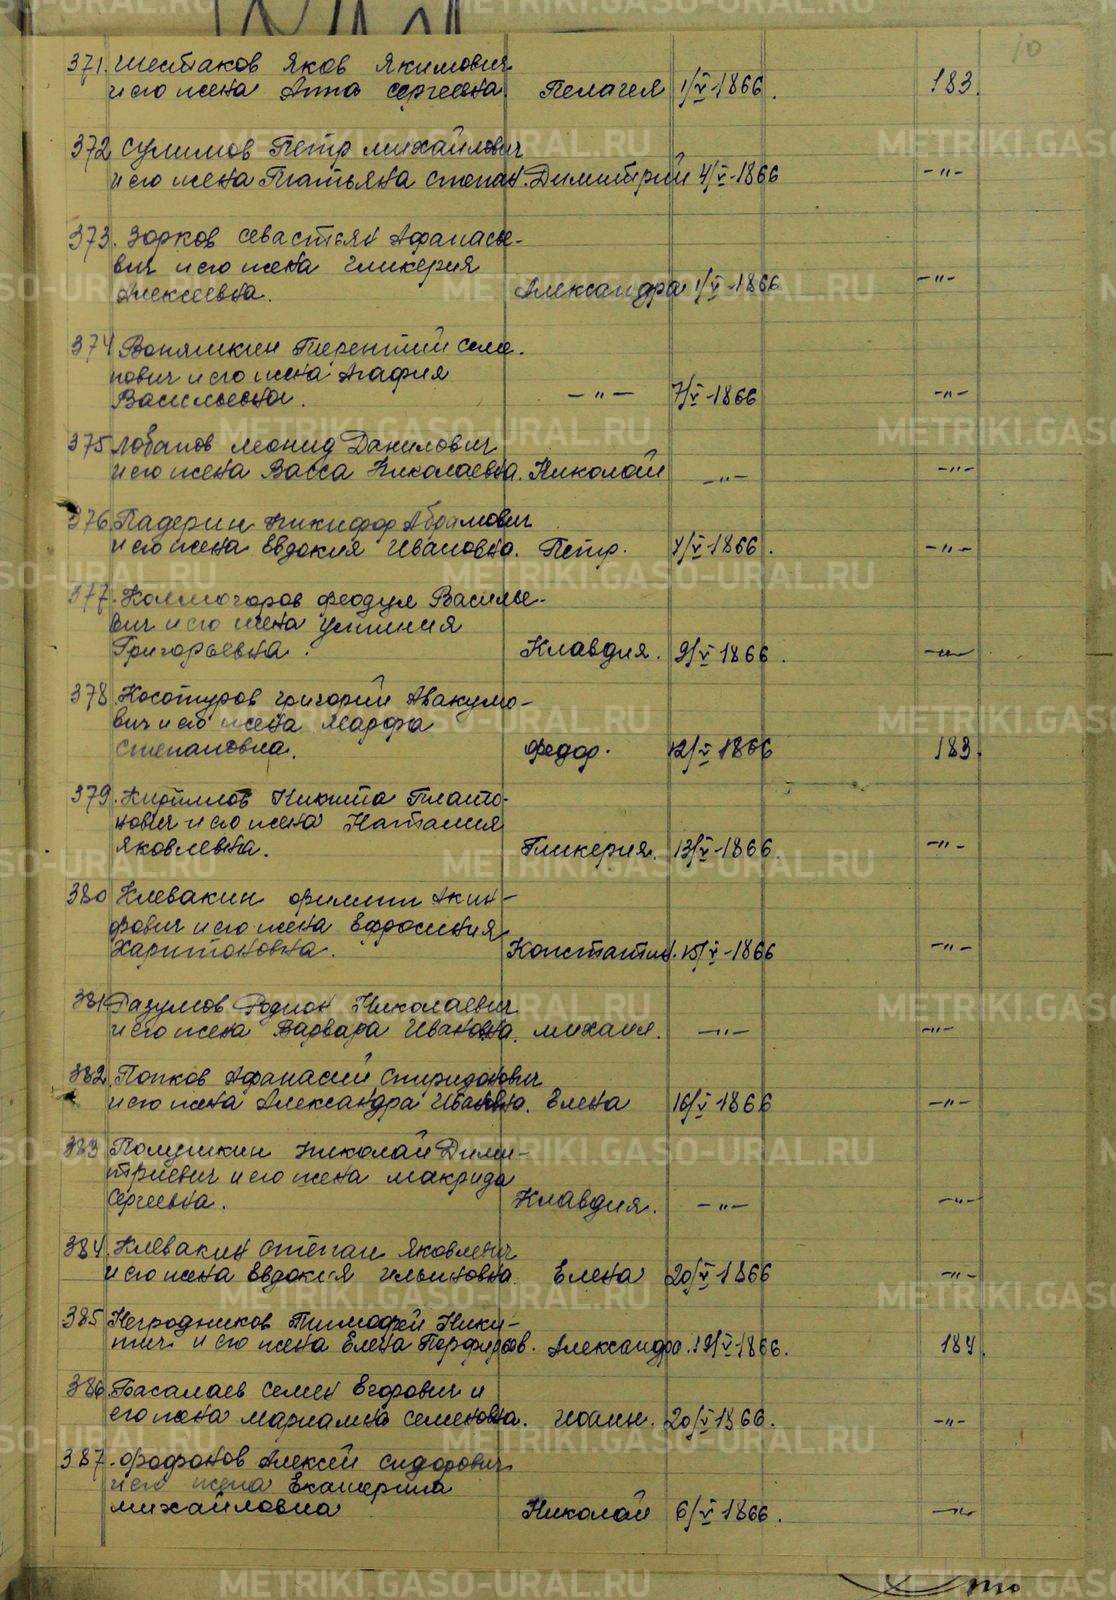 10
371. Шестаков Яков Якимович
и его жена Анна Сергеевна. Пелагея 1/V-1866. 183.
372 Сулимов Петр Михайлович
и его жена Татьяна Степан. Димитрий 4/V-1866 -"-
373. Зорков Севастьян Афанасье-
вич и его жена Гликерия
Алексеевна. Александра 1/V-1866 -"-
374 Ваняшкин Терентий Семе-
нович и его жена Агафия
Васильевна. -"- 7/V-1866 -"-
375 Лобанов Леонид Данилович
и его жена Васса Николаевна. Николай -"- -"-
376 Падерин Никифор Абрамович
и его жена Евдокия Ивановна. Петр. 4/V-1866. -"-
377. Колмогоров Феодул Василье-
вич и его жена Устиния
Григорьевна. Клавдия. 9/V-1866. -"-
378 Косотуров Григорий Авакумо-
вич и его жена Марфа
Степановна. Федор. 12/V 1866 183.
379. Кириллов Никита Плато-
нович и его жена Наталия
Яковлевна. Гликерия. 13/V-1866. -"-
380 Клевакин Филипп Акин-
фович и его жена Ефросиния
Харитоновна. Константин. 15/V-1866 -"-
381 Разумов Родион Николаевич
и его жена Варвара Ивановна. Михаил. -"- -"-
382. Попков Афанасий Спиридонович
и его жена Александра Ивановна. Елена 16/V-1866 -"-
383 Полушкин Николай Дими-
триевич и его жена Макрида
Сергеевна. Клавдия. -"- -"-
384. Клевакин Степан Яковлевич
и его жена Евдокия Ильиновна. Елена 20/V-1866 -"-
385 Негродников Тимофей Ники-
тич и его жена Елена Порфирьев. Александра. 19/V-1866. 184.
386 Басалаев Семен Егорович и
его жена Мариамна Семеновна. Иоанн. 20/V-1866. -"-
387. Фофанов Алексей Сидорович
и его жена Екатерина
Михайловна Николай 6/V 1866. -"-
METRIKI.GASO-URAL.RU